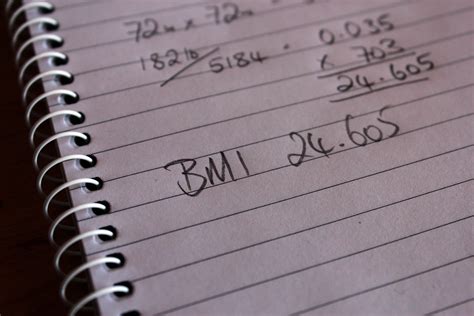 72in x 72in
182lb/5184 = 0.035
x 703
24.605
BMI 24.605